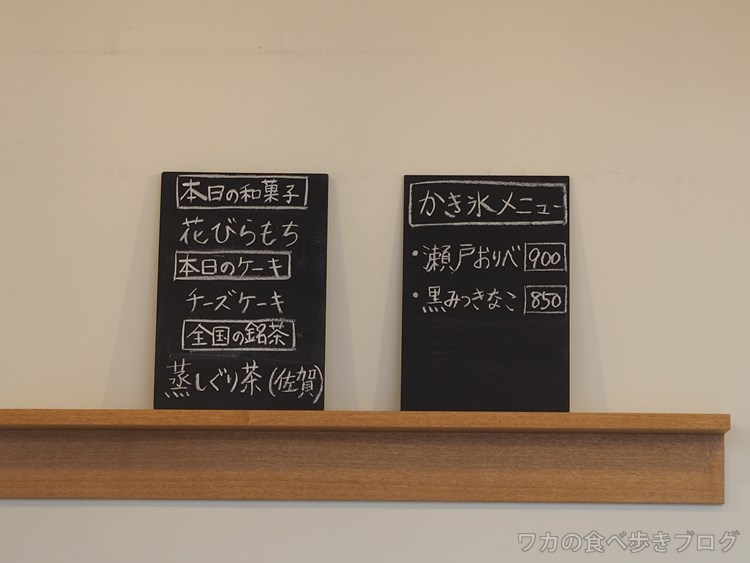 本日の和菓子
花びらもち
本日のケーキ
チーズケーキ
全国の銘茶
蒸しぐり茶(佐賀)
かき氷メニュー
・瀬戸おりべ 900
・黒みつきなこ 850
ワカの食べ歩きブログ